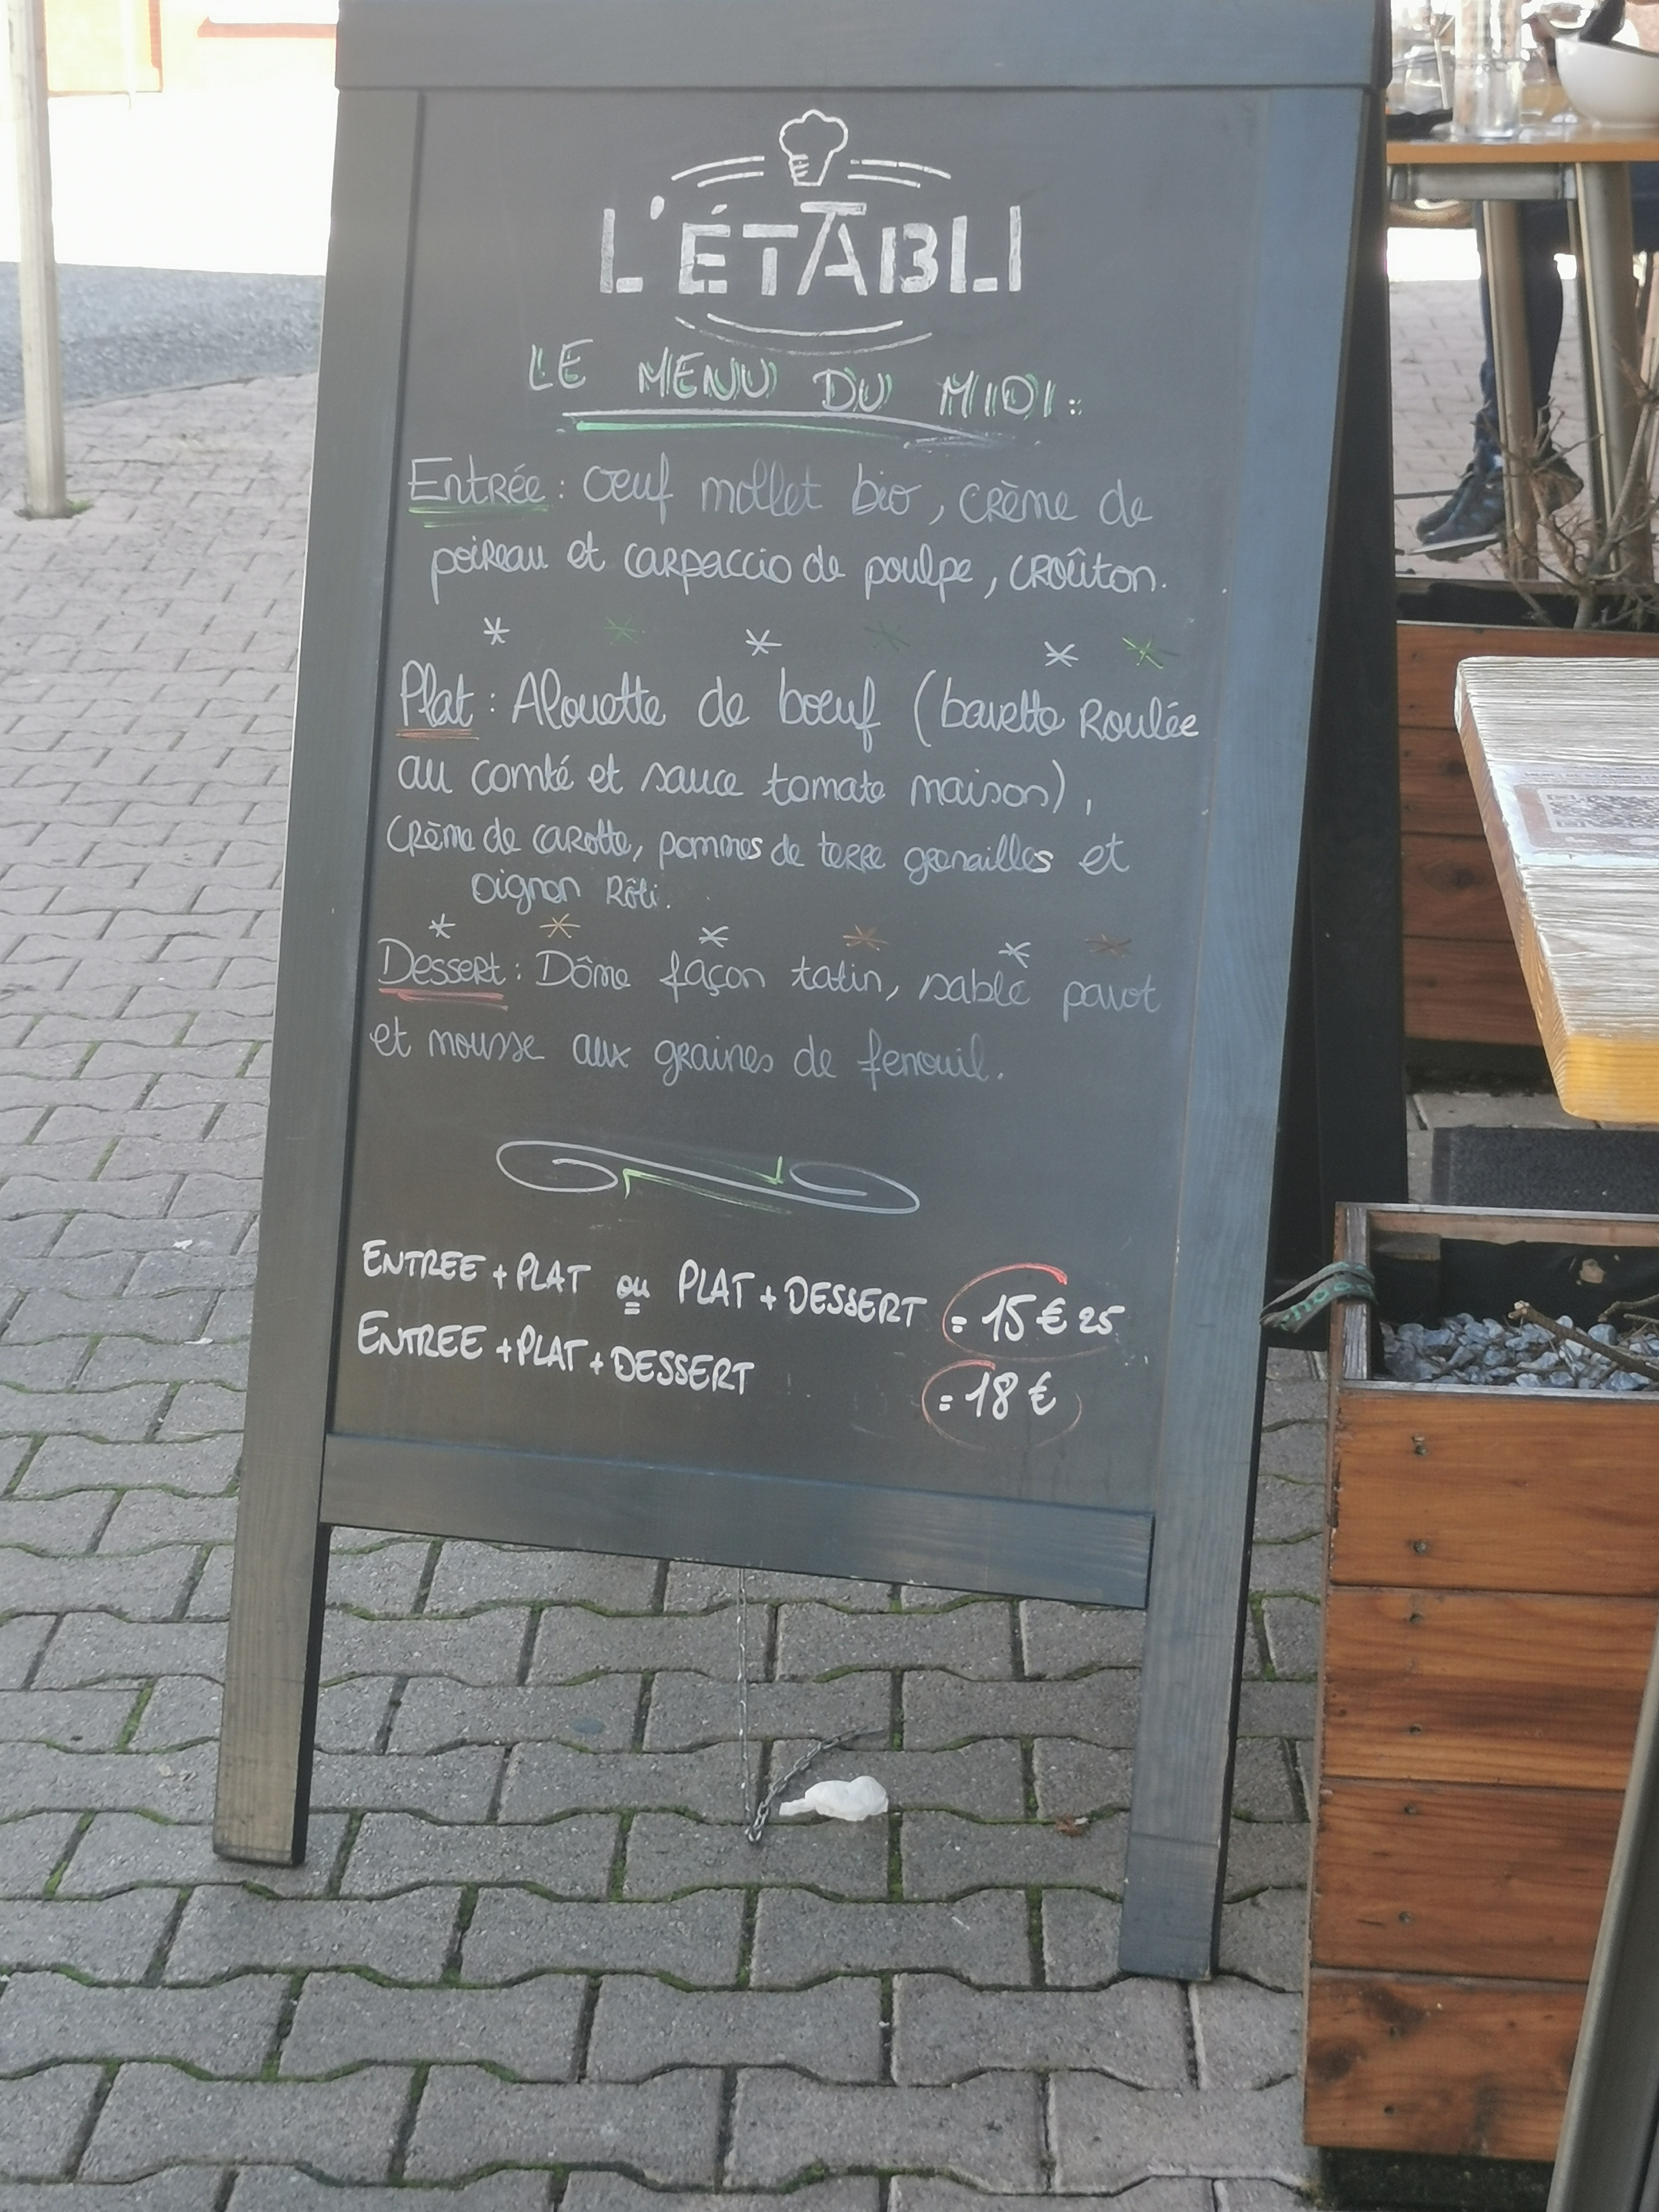 L'ÉTABLI
LE MENU DU MIDI :
Entrée : oeuf mollet bio, crème de
poireau et carpaccio de poulpe, croûton.
Plat : Alouette de boeuf (bavette Roulée
au comté et sauce tomate maison),
Crème de carotte, pommes de terre grenailles et
oignon Rôti.
Dessert : Dôme façon tatin, sablé pavot
et mousse aux graines de fenouil.
ENTREE + PLAT ou PLAT + DESSERT = 15 € 25
ENTREE + PLAT + DESSERT = 18 €